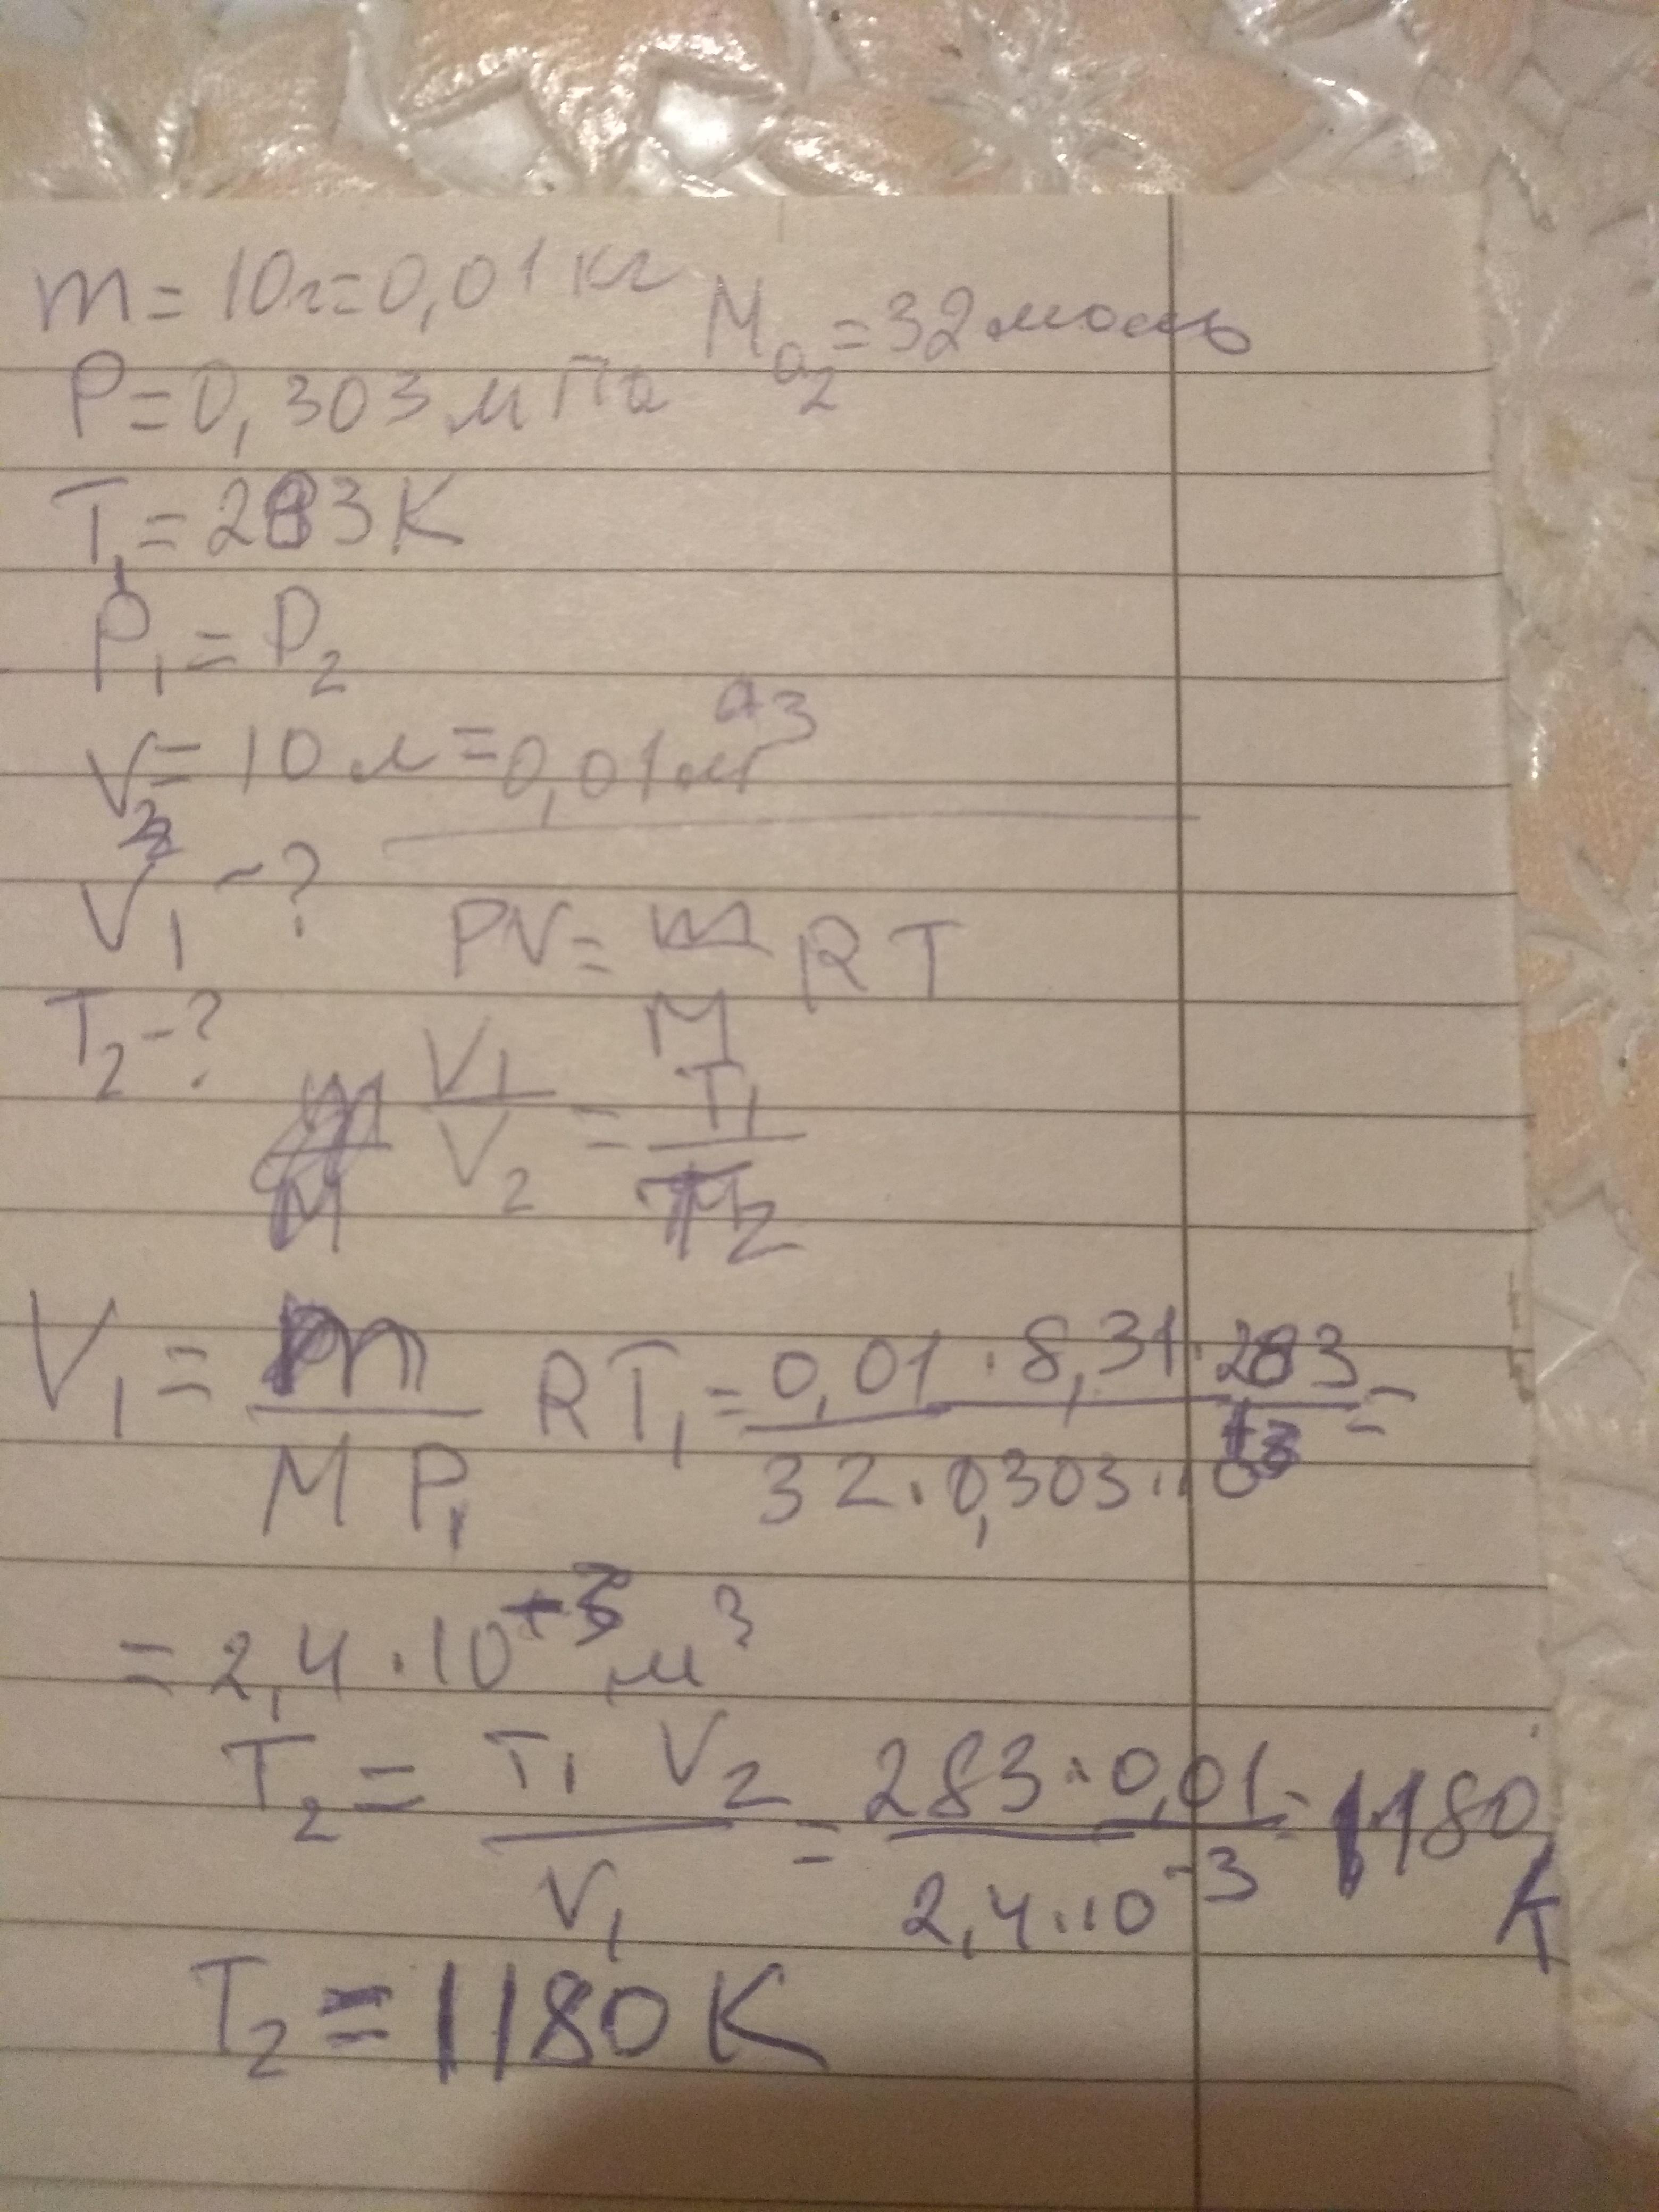 m = 10г = 0,01 кг
M O2 = 32 моль
P = 0,303 мПа
T1 = 283 K
P1 = P2
V2 = 10 л = 0,01 м3
V1 - ?
PV = m/M RT
T2 - ?
V1/V2 = T1/T2
V1 = m/(M P1) RT1 = (0,01 · 8,31 · 283)/(32 · 0,303 · 10^3) =
= 2,4 · 10^-3 м3
T2 = (T1 V2)/V1 = (283 · 0,01)/(2,4 · 10^-3) = 1180 K
T2 = 1180 K